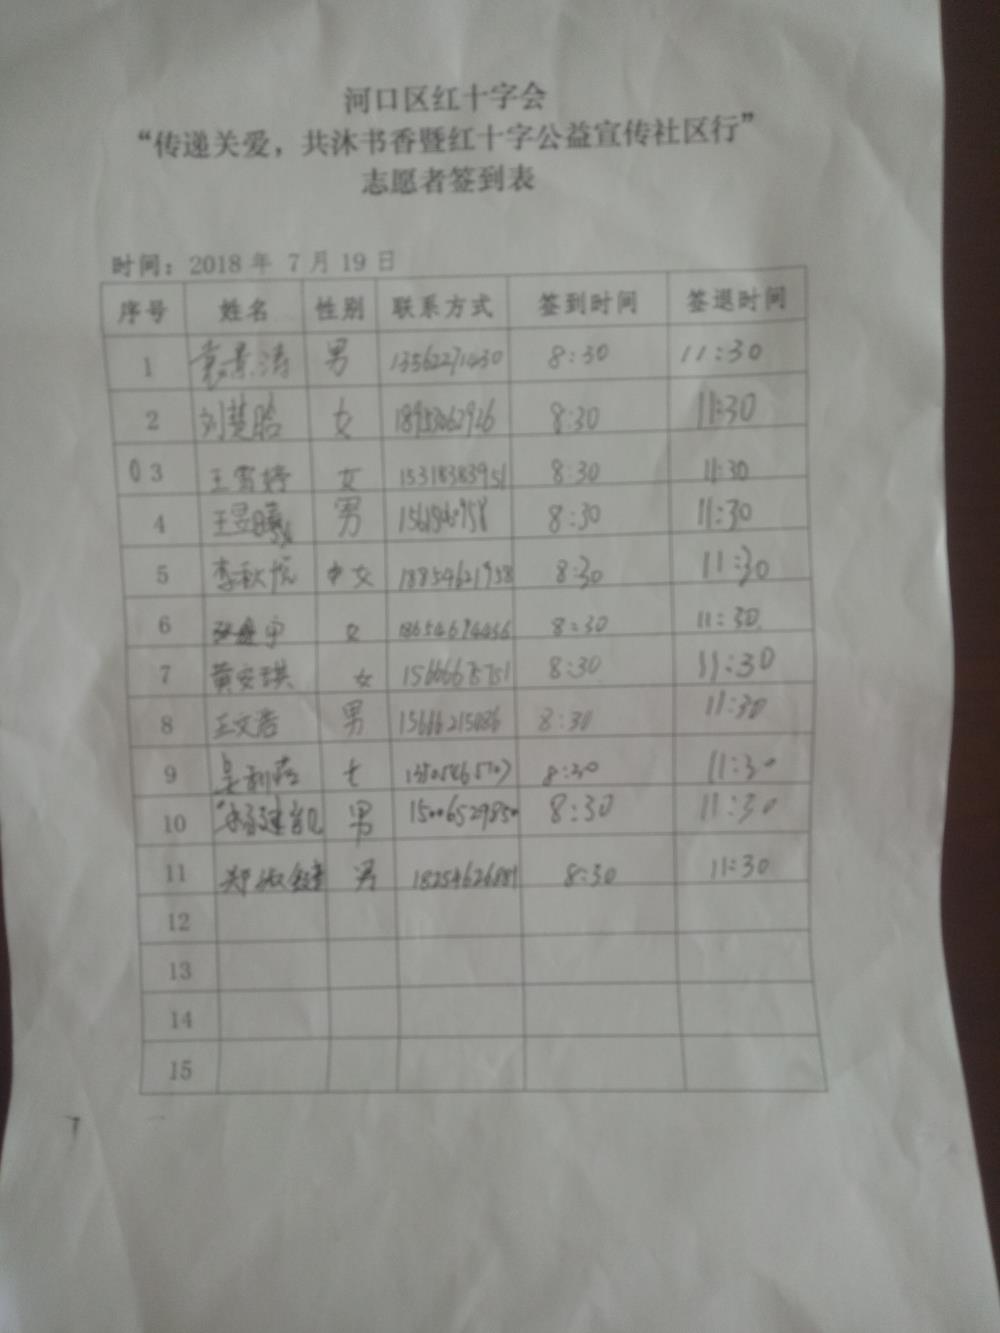 河口区红十字会
“传递关爱，共沐书香暨红十字公益宣传社区行”
志愿者签到表
时间：2018 年 7 月 19 日
序号 姓名 性别 联系方式 签到时间 签退时间
1 袁景涛 男 13562271430 8:30 11:30
2 女 18953062926 8:30 11:30
3 王雪婷 女 15318383951 8:30 11:30
4 王昱曦 男 8:30 11:30
5 李秋悦 女 18854621958 8:30 11:30
6 女 18654694456 8:30 11:30
7 黄安琪 女 8:30 11:30
8 王文浩 男 15666215086 8:30 11:30
9 女 8:30 11:30
10 男 15006529850 8:30 11:30
11 郑 男 8:30 11:30
12
13
14
15